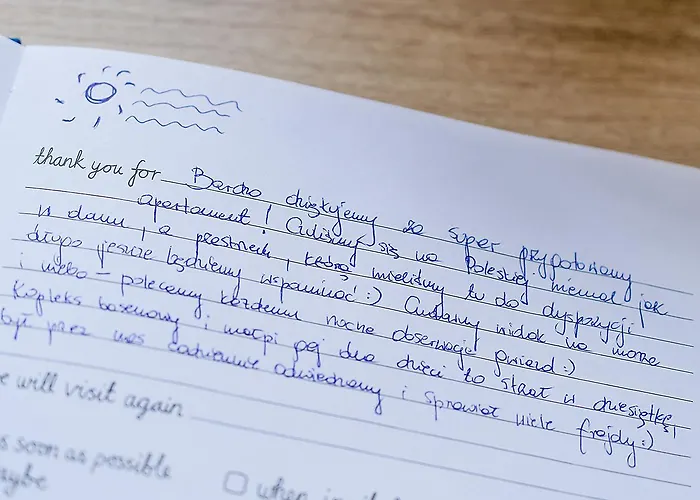 thank you for Bardzo dziękujemy za super przygotowany
apartament! Czuliśmy się na Poleskiej niemal jak
w domu, a przestrzeń, którą mieliśmy tu do dyspozycji
długo jeszcze będziemy wspominać :) Cudowny widok na morze
i niebo - polecamy każdemu nocne obserwacje gwiazd :)
Kopleks basenowy i małpi gaj dla dzieci to strzał w dziesiątkę,
był przez nas codziennie odwiedzany i sprawiał wiele frajdy :)
e will visit again
s soon as possible
aybe